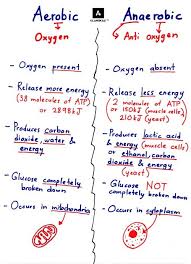 Aerobic
Oxygen
- Oxygen present
- Release more energy
(38 molecules of ATP)
or 2898kJ
- Produces carbon
dioxide, water &
energy
- Glucose completely
broken down
- Occurs in mitochondria
Anaerobic
Anti oxygen
- Oxygen absent
- Release less energy
(2 molecules of ATP)
or 150kJ (muscle cells)
or 210kJ (yeast)
- Produces lactic acid
& energy (muscle cells)
or ethanol, carbon
dioxide & energy
(yeast)
- Glucose NOT
completely broken down
- Occurs in cytoplasm